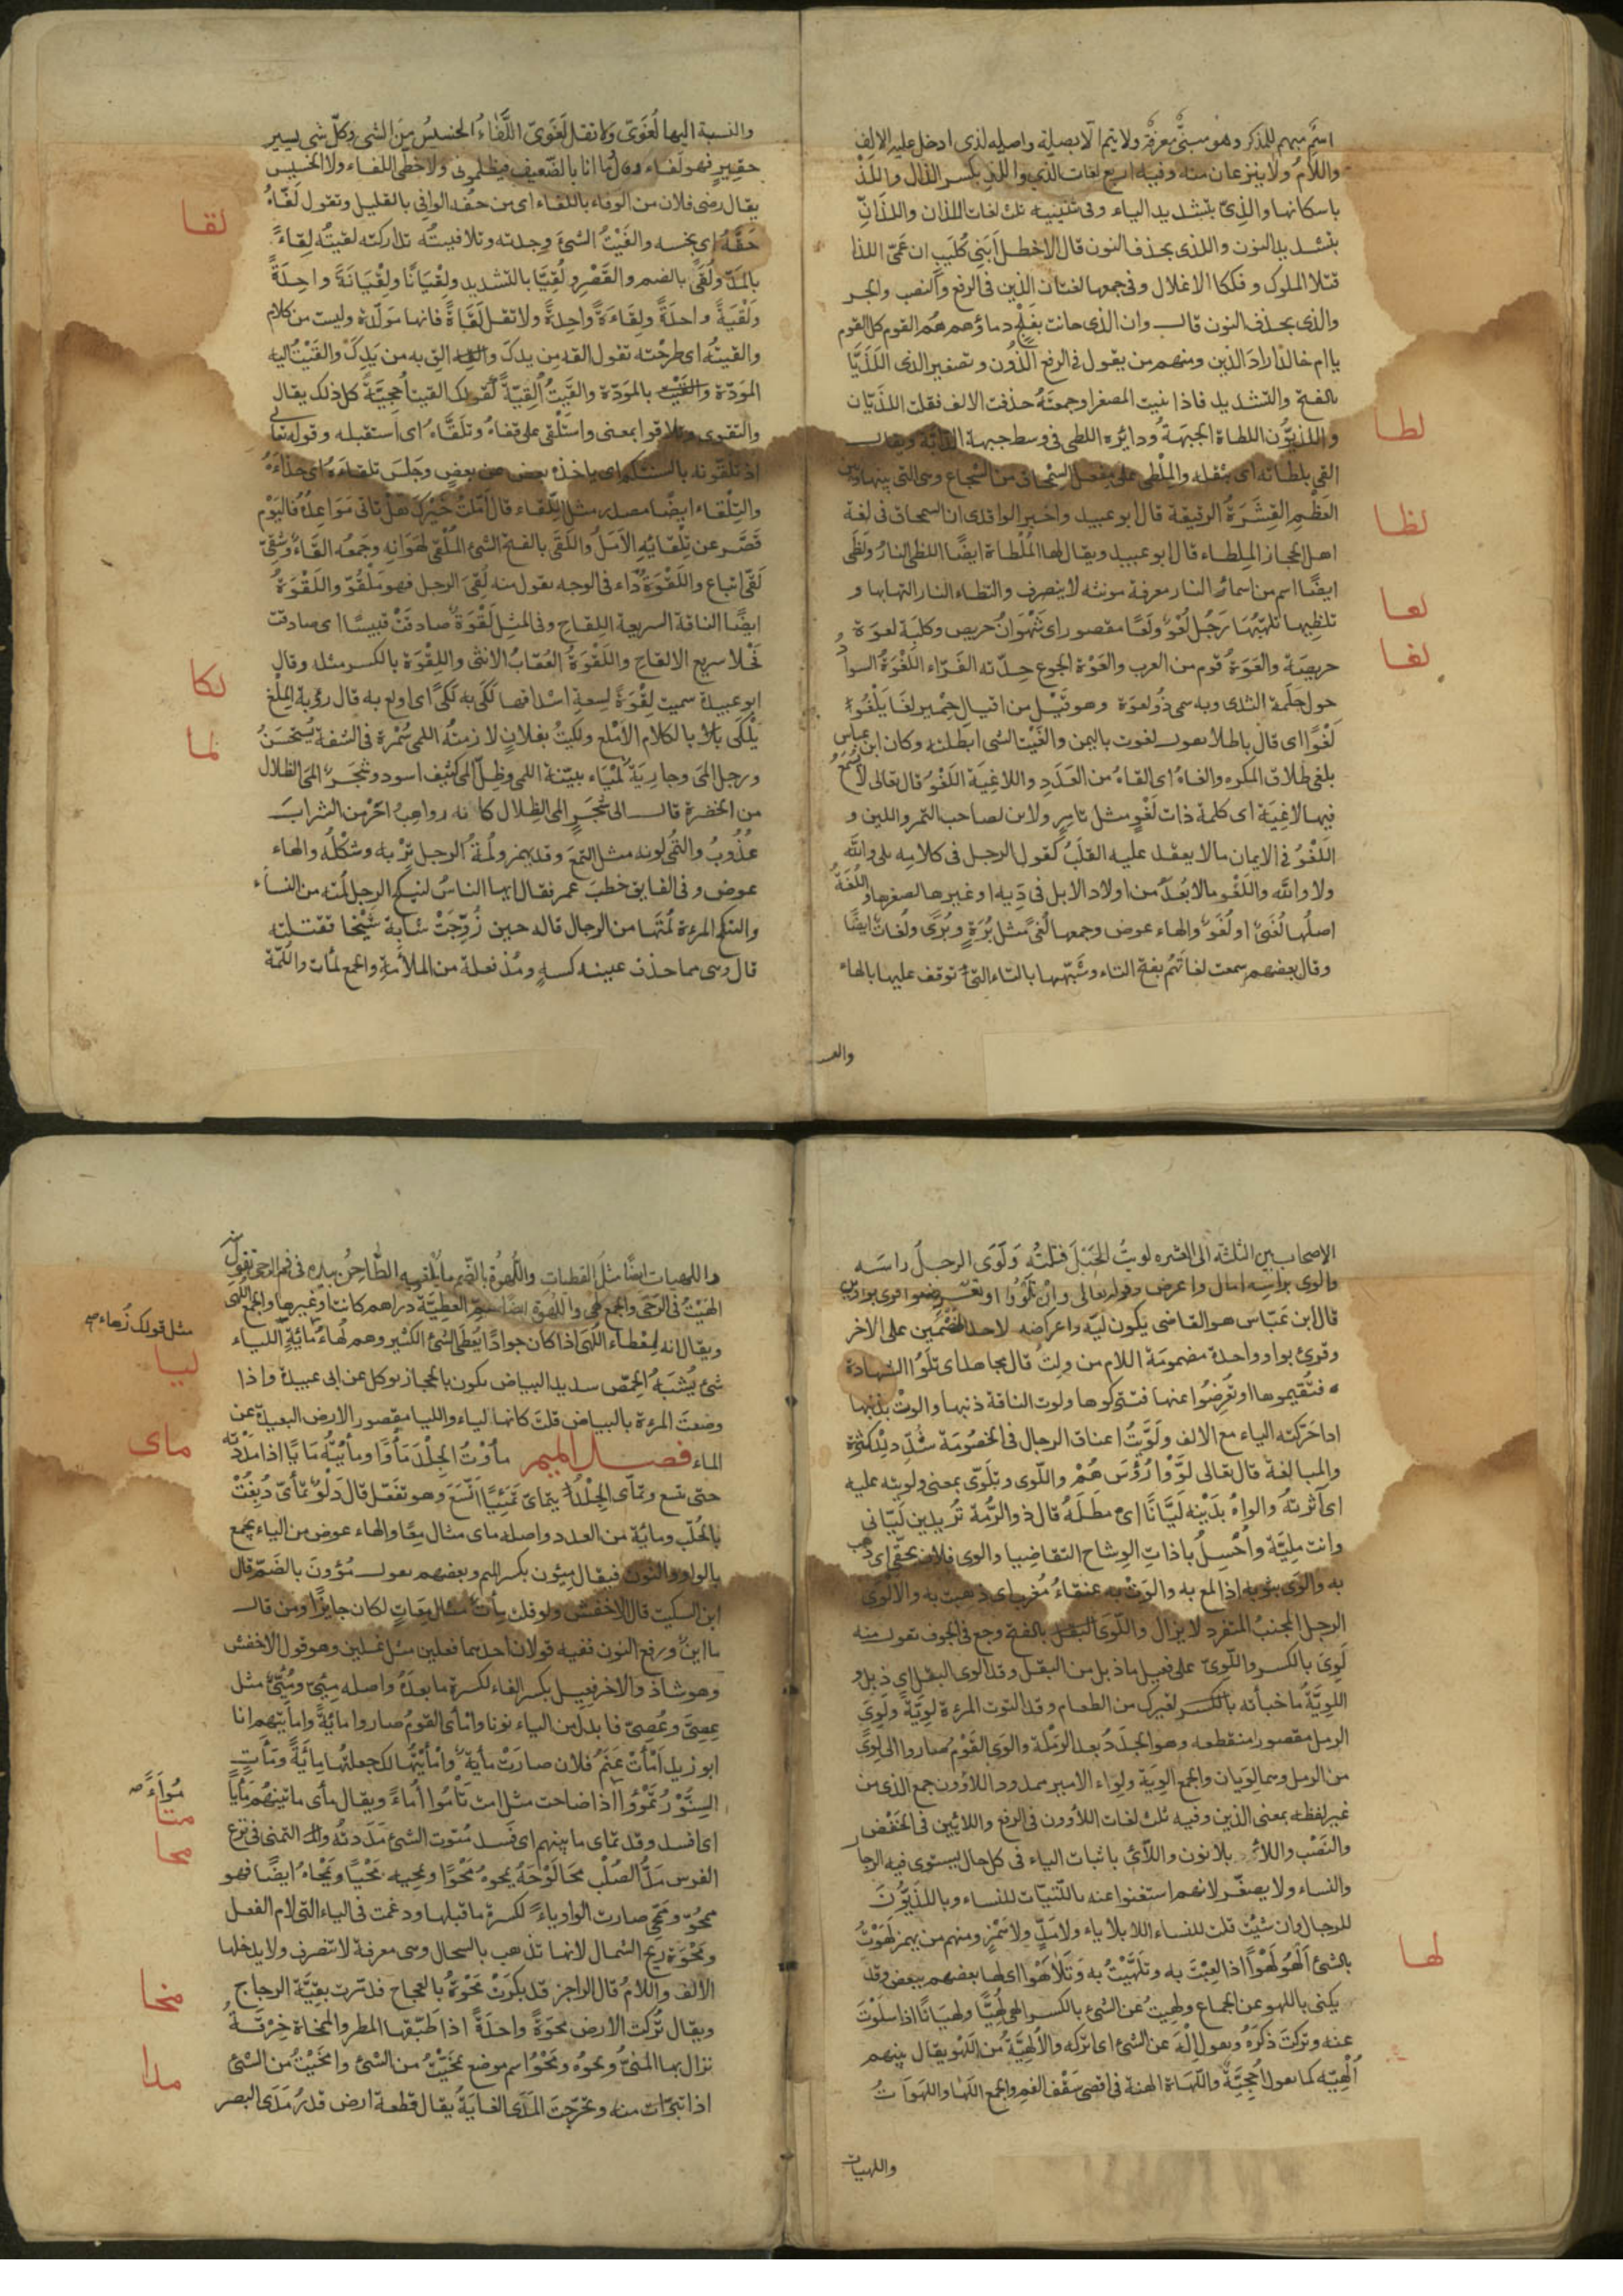 اسم مبهم للمذكر وهو مبنىّ معرفة ولا يتم الا بصلته واصله لذى ادخل عليه الالف
واللام ولا ينزعان منه وفيه اربع لغات الذى واللذِ بكسر الذال واللذْ
باسكانها والذىّ بتشديد الياء وفى تثنيته ثلث لغات اللذان واللذانّ
بتشديد النون واللذى بحذف النون قال الاخطل أبنى كليب ان عمّىّ اللذا
قتلا الملوك وفككا الاغلال وفى جمعها لغتان الذين فى الرفع والنصب والجر
والذى بحذف النون قال وان الذى حانت بفلج دماؤهم هم القوم كل القوم
يا ام خالد اراد الذين ومنهم من يقول فى الرفع الذون وتصغير الذى اللَذَيَّا
بالفتح والتشديد فاذا ثنيت المصغر او جمعته حذفت الالف فقلت اللذيّان
واللذيّون اللطاة الجبهة ودائرة اللطى فى وسط جبهة الدابة ويقال
لطا
القى بلطاته اى بثقله والملطى على مفعل السمحاق من الشجاج وهى التى بينها وبين
العظم القشرة الرقيقة قال ابو عبيد واخبر الواقدى ان السمحاق فى لغة
لظا
اهل الحجاز الملطاء قال ابو عبيد ويقال لها الملطاة ايضًا اللظى النار ولظى
ايضًا اسم من اسماء النار معرفة مونثه لا ينصرف والتظاء النار التهابها و
لعا
تلظيها تلهّبها رَجُل لَعْوٌ ولَعًا مقصور اى شَهْوَانُ حريص وكلبة لعوة
لغا
حريصة والعَوَة قوم من العرب واللعْوة الجوع حدّته الفرّاء اللعْوَة السواد
حول حلمة الثدى وبه سمى ذو لعوة وهو قيل من اقيال حمير لغا يلغو
لغوًا اى قال باطلا يقول لغوت باليمين والغيت الشى ابطلته وكان ابن عباس
يلغى طلاق المكره والغاه اى القاه من العدد واللاغية اللغو قال تعالى لا تسمع
فيها لاغية اى كلمة ذات لغو مثل تامر ولابن لصاحب التمر واللبن و
اللغو فى الايمان ما لا يعقد عليه القلب كقول الرجل فى كلامه بلى والله
ولا والله واللغو ما لا يُعدّ من اولاد الابل فى دية او غيرها لصغرها واللغة
اصلها لُغَىٌ او لُغَوٌ والهاء عوض وجمعها لُغًى مثل بُرَةٍ وبُرًى ولغات ايضًا
وقال بعضهم سمعت لغاتَهم بفتح التاء وشبّهها بالتاء التى توقف عليها بالهاء
والنسبة اليها لُغَوىّ ولا تقل لَغَوىّ اللَّفَاءُ الخسيس من الشى وكلّ شى يسير
حقير فهو لَفَاء وقال انا بالضعيف فيظلمونى ولا حظّى اللفاء ولا الخسيس
يقال رضى فلان من الوفاء باللفاء اى من حقّه الوافى بالقليل وتقول لَفَّاهُ
لقا
حَقَّهُ اى بخسه والفَيْتُ الشىَ وجدته وتلافيتُه تداركته لقيتُه لِقَاءً
بالمدّ ولُقًى بالضم والقصر ولُقِيًّا بالتشديد ولِقْيَانًا ولِقْيَانَةً واحدةً
ولَقْيَةً واحدةً ولِقاءَةً واحِدةً ولا تقل لَقَاةً فانها مولّدة وليست من كلام
والقيتُه اى طرحْته تقول القه من يدك والق به من يَدِكَ والقَيْتُ اليه
المودّة والقيْت بالمودّة والقَيْتُ اُلْقِيَّةً كقولك القيت اُحجيّةً كل ذلك يقال
والتقوى وتلاقوا بمعنى واستلقى على قفاه وتلقّاه اى استقبله وقوله تعالى
اذ تلقّونه بالسنتكم اى ياخذه بعض عن بعضٍ وجَلسَ تلقاءَهُ اى حذاءَهُ
والتِلْقاء ايضًا مصدر مثل اللقاء قال امّلتُ خيْرَكَ هَلْ تاتى مَوَاعِدُهُ فاليَوْم
قَصَّر عن تِلْقَائِهِ الاَمَلُ واللقَى بالفتح الشئ المُلْقى لهوَانِه وجَمعُه القاءٌ وشَقىٌّ
لَقىٌّ اتباع واللَقْوَةُ دَاء فى الوجه يقول منه لُقِىَ الرجل فهو مَلْقُوٌّ واللَقْوَةُ
ايضًا الناقة السريعة اللقاح وفى المثل لَقْوَةٌ صادفَتْ قبيسًا اى صادفت
فحلا سريع الالقاح واللَقْوَةُ العُقَابُ الانثى واللِقْوَة بالكسر مثله وقال
لكا
ابو عبيدة سميت لِقْوَةً لسعة اشداقها لَكِىَ به لَكًى اى اولع به قال رؤبة المِلْغ
يَلْكَى بالكلام الاَمْلغ ولكيتُ بفلانٍ لازمتُه اللمى سُمْرة فى الشفة يُستحسَنُ
لما
ورجل المَى وجارية لمْيَاء بيّنة اللمى وظِلّ المى كثيف اسود وشَجَر المَى الظلال
من الخضرة قال الى شَجَرٍ المى الظِلال كانه رواهبُ احرَمْن الشرابَ
عُذُوبُ والتُمِى لونه مثل التمعَ وقد يهمز ولُمَةُ الرجل تِرْبه وشَكْلُه والهاء
عوض وفى الفايق خطب عمر فقال ايها الناسُ لينكح الرجل لُمَته من النساء
ولتنكح المرءة لُمَتَها من الرجال قاله حين زُوِّجَتْ شابة شَيْخا فقتلته
قال وهى مما حذف عينه كسهٍ ومُذ فعلة من الملأمة والجمع لمات واللُمّة
والنسـ
الاصحاب بين الثلثة الى العشره لويتُ الحَبْلَ فتلتُه ولَوَى الرجلُ راسَه
والوى براسه امال واعرض وقوله تعالى وانْ تلوُوا او تعرضوا قرى بواوين
قال ابن عَبّاس هو القاضى يكون ليّه واعراضه لاحد الخصْمَين على الاخر
وقرئ بواو واحدة مضمومَة اللام من وليتُ قال مجاهد اى تلُوا الشهادة
فتقيموها او تُعرِضُوا عنها فتتركوها ولوت الناقة ذنبها والوتْ بذنبها
اذا حَرّكته الياء مع الالف ولَوّيْتُ اعناق الرجال فى الخصُومَة شُدّد للكثرة
والمبالغة قال تعالى لَوَّوْا رُؤُسَهُمْ واللّوى وتلَوّى بمعنى ولويته عليه
اى اثرتُه والواه بدَيْنه ليَّانًا اى مَطَلَهُ قال ذو الرُّمة تُريدين ليّانى
وانت مليّة واُحْسِنُ يا ذاتِ الوِشاح التقاضيا والوى فلان بحقى اى ذهب
به والوَى بثوبه اذا لمع به والوَتْ به عنقاءُ مُغرب اى ذهبت به والالوى
الرجل المجتنبُ المتفرد لا يزال واللّوَى بالفتح وجع فى الجوف تقول منه
لَوِىَ بالكسر واللَّوِىّ على فعيل ما ذبل من البقل وقد الوى البقل اى ذبل و
اللوِيَّةُ ما خبأته لغيرك من الطعام وقد التوت المرءة لَوِيّةً ولِوَى
الرمل مقصور منقطعه وهو الجَدَدُ بعد الرَمْلة والوَى القَوْمُ صاروا الى لِوَى
من الرمل وهما لِوَيان والجمع الوِيَة ولِوَاء الامير ممدود اللاؤون جمع الذى من
غير لفظه بمعنى الذين وفيه ثلث لغات اللاؤون فى الرفع واللائين فى الخَفْض
والنَصْب واللاؤ بلا نون واللائى باثبات الياء فى كل حال يستوى فيه الرجال
والنساء ولا يصغّر لانهم استغنوا عنه باللّتيّات للنساء وباللَّذَيُّونَ
للرجال وان شئت قلت للنساء اللا بلا ياء ولا مدٍّ ولا همْزٍ ومنهم من يهمز لَهَوْتُ
لها
بالشئ اَلْهُو لَهْوًا اذا لَعِبْتَ به وتلهّيْتُ به وتَلاهَوْا اى لها بعضهم ببعض وقد
يكنى باللهو عن الجماع ولَهِيتُ عن الشئ بالكسر الهى لُهِيًّا ولِهْيَانًا اذا سلَوْتَ
عنه وتركتَ ذكرَهُ ويقول اِلْهَ عن الشئ اى اتركه والاُلْهِيَّةُ من اللهو يقال بينهم
اُلْهِيّة كما يقول اُحجِيَّةٌ واللهَاة الهنة فى اقصى سَقْف الفم والجمع اللَهَا واللهَوَاتُ
واللهيات
واللهيات ايضًا مثل القطيات واللُّهوَةُ بالضم ما يلقيه الطّاحِنُ بيده فى فم الرحى تقول
الهَيْتُ فى الرَحَى والجمع لُهى واللُهْوَة ايضًا العطيّة دراهم كانت او غيرها والجمع اللُهَى
مثل قولك زُهاء صح
ويقال انه لمِعْطاء اللُهَى اذا كان جوادًا يُعطى الشئ الكثير وهم لُهاءُ مائةٍ اللياء
ليا
شئ يُشبَهُ الحِمّص شديد البياض يكون بالحجاز يوكل عن ابى عبيدة واذا
وضعت المرءة بالبياض قلتَ كانها لياء والليا مقصور الارض البعيدة عن
الماء فصل الميم مأوْتُ الجِلْدَ مَأوًا ومأيْتُه مَايًا اذا مدَدْتَه
ماى
حتى يتسع وتمأّى الجِلْدُ يتمأى تمَئِّيًا اتّسَعَ وهو تفعّل قال دَلْوٌ تمأّى دُبغتْ
بالحُلّب ومائة من العدد واصله ماى مثال مِعًا والهاء عوض من الياء يجمع
بالواو والنون فيقال مِئون بكسر الميم وبعضهم يقول مُؤونَ بالضَمّ قال
ابن السكيت قال الاخفش ولو قلت مِأات مثال مِعَاتٍ لكان جايزًا ومن قال
مائين ورفع النون ففيه قولان احدهما فعلين مثل غسلين وهو قول الاخفش
وهو شاذ والاخر فعيل بكسر الفاء لكسرة ما بعده واصله مِئىٌ ومُئىٌ مثل
عِصىّ وعُصىّ فابدل من الياء نونا وامأى القومُ صاروا مائةً وامأيتهم انا
ابو زيد اَمْأتْ غَنَمُ فلان صارَتْ مأية وامْأيْتُها لك جعلتُها مائةً ومَأتِ
السِنَّوْرُ تمْؤوا اذا صاحت مثل امت تأمُوا اُماءً ويقال مأى ما بينهم مَأيًا
مُوَاءً صح
اى افسد وقد تمأى ما بينهم اى فسد مَتوت الشئ مَدَدتُه والتمتى فى نزع
متا
القوس مَدُّ الصُلْب مَحَا لَوْحَهُ يمحوهُ مَحْوًا ويمحيه مَحْيًا ويمحَاهُ ايضًا فهو
محا
ممحُوّ وممْحِىّ صارت الواو ياءً لكسرة ما قبلها ودغمت فى الياء التى لام الفعل
ومَحْوَة ريح الشمال لانها تذهب بالسحال وهى معرفة لا تنصرف ولا يدخلها
الالف واللامُ قال الراجز قد بكَرَتْ مَحْوَةُ بالعجاج فدمّرت بقيّة الرجاج
مخا
ويقال تُركت الارض محْوَةً واحدَةً اذا طبّقها المطر والممحاة خِرْقَةٌ
تزال بها المنىّ ونحوه ومَخْوُ اسم موضع تمخّيْتُ من الشئ وامخَيْتُ من الشئ
مدا
اذا تبرّأت منه وتحرّجت المَدَى الغايَةُ يقال قطعة ارض قدرُ مَدَى البصر